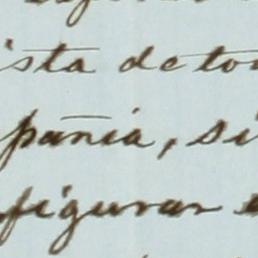 ista de to
pañia, si
figurar